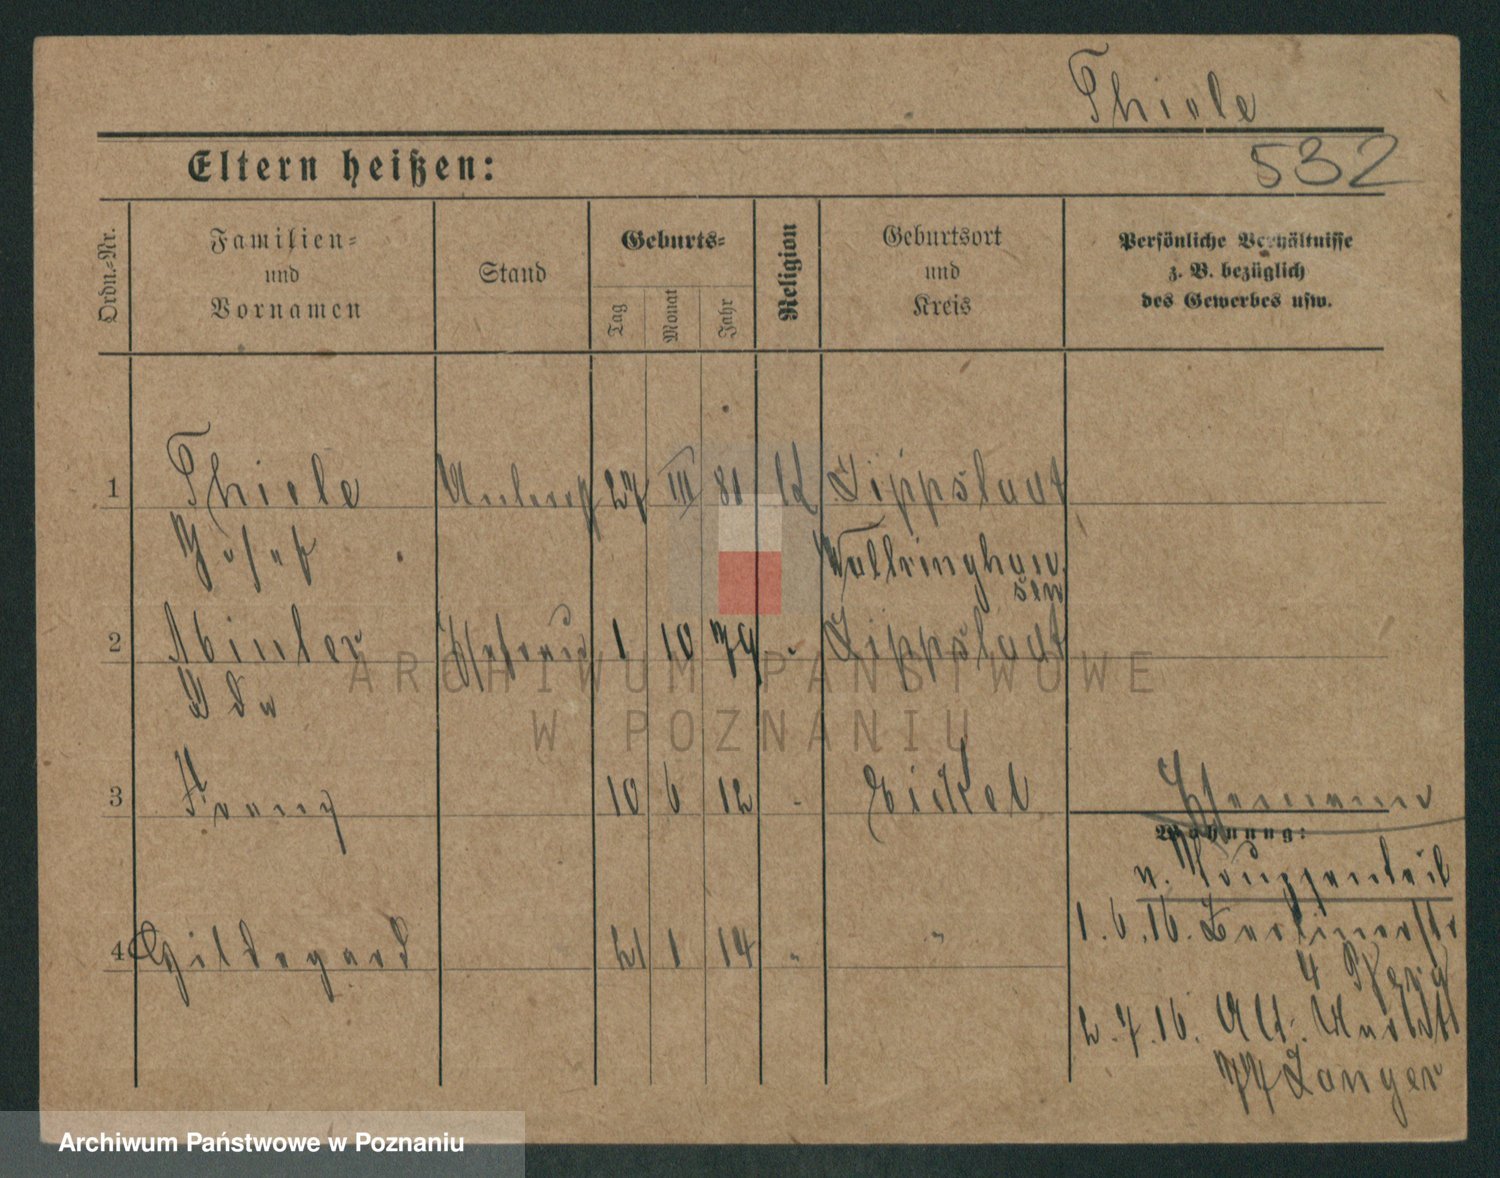 Thiele
532
Eltern heißen:
Ordn.-Nr.
Familien-
und
Vornamen
Stand
Geburts-
Tag
Monat
Jahr
Religion
Geburtsort
und
Kreis
Persönliche Verhältnisse
z. B. bezüglich
des Gewerbes usw.
1 Thiele 27 III 81 K Lippstadt
Josef
2 Ehefrau 1 10 79 " Lippstadt
Ida
3 Franz 10 6 12 " Eickel
Wohnung:
4 Hildegard 21 1 14 " "
1.6.16. Berlinerstr
4
2.7.16. Alt. Markt
77 Langer
ARCHIWUM PAŃSTWOWE
W POZNANIU
Archiwum Państwowe w Poznaniu